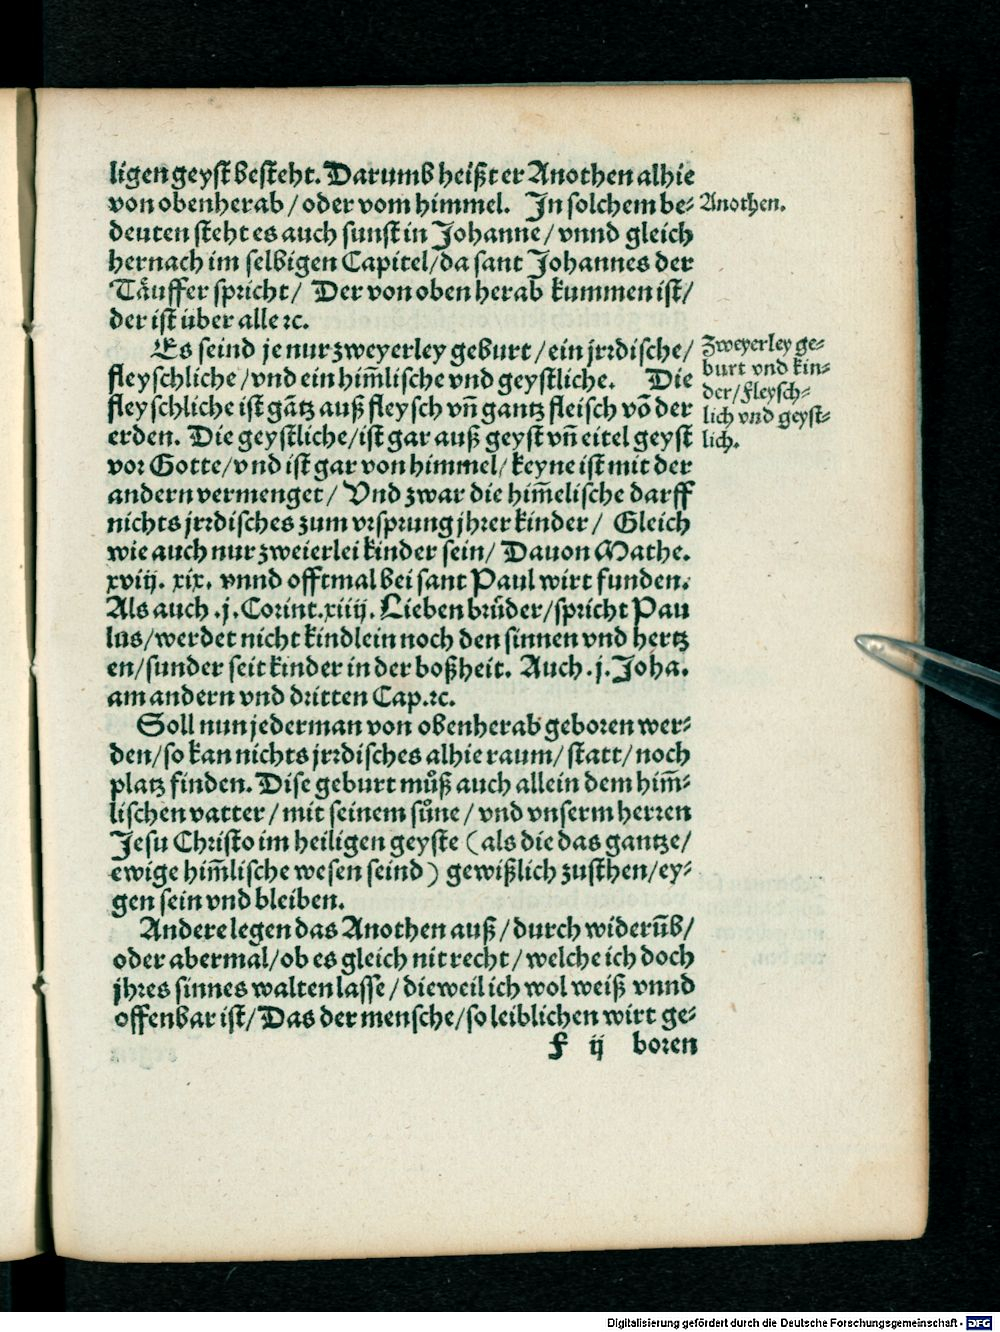 ligen geyst besteht. Darumb heißt er Anothen alhie
von obenherab / oder vom himmel. In solchem be-
Anothen.
deuten steht es auch sunst in Johanne / vnnd gleich
hernach im selbigen Capitel/ da sant Johannes der
Täuffer spricht / Der von oben herab kummen ist/
der ist über alle ꝛc.
Es seind je nur zweyerley geburt / ein jrꝛdische/
fleyschliche / vnd ein him̃lische vnd geystliche. Die
fleyschliche ist gãtz auß fleysch vñ gantz fleisch võ der
erden. Die geystliche/ ist gar auß geyst vñ eitel geyst
vor Gotte/ vnd ist gar von himmel/ keyne ist mit der
andern vermenget / Vnd zwar die him̃elische darff
nichts jrꝛdisches zum vrsprung jhrer kinder / Gleich
wie auch nur zweierlei kinder sein/ Dauon Mathe.
xviij. xix. vnnd offtmal bei sant Paul wirt funden.
Als auch .j. Corint. xiiij. Lieben brůder/ spricht Pau
lus/ werdet nicht kindlein noch den sinnen vnd hertz
en/ sunder seit kinder in der boßheit. Auch .j. Joha.
am andern vnd dritten Cap. ꝛc.
Zweyerley ge-
burt vnd kin-
der/ fleysch-
lich vnd geyst-
lich.
Soll nun jederman von obenherab geboren wer-
den/ so kan nichts jrꝛdisches alhie raum/ statt/ noch
platz finden. Dise geburt můß auch allein dem him̃-
lischen vatter / mit seinem sůne / vnd vnserm herꝛen
Jesu Christo im heiligen geyste ( als die das gantze/
ewige him̃lische wesen seind ) gewißlich zusthen/ ey-
gen sein vnd bleiben.
Andere legen das Anothen auß / durch widerũb/
oder abermal/ ob es gleich nit recht / welche ich doch
jhres sinnes walten lasse / dieweil ich wol weiß vnnd
offenbar ist/ Das der mensche/ so leiblichen wirt ge-
f ij boren
Digitalisierung gefördert durch die Deutsche Forschungsgemeinschaft - DFG